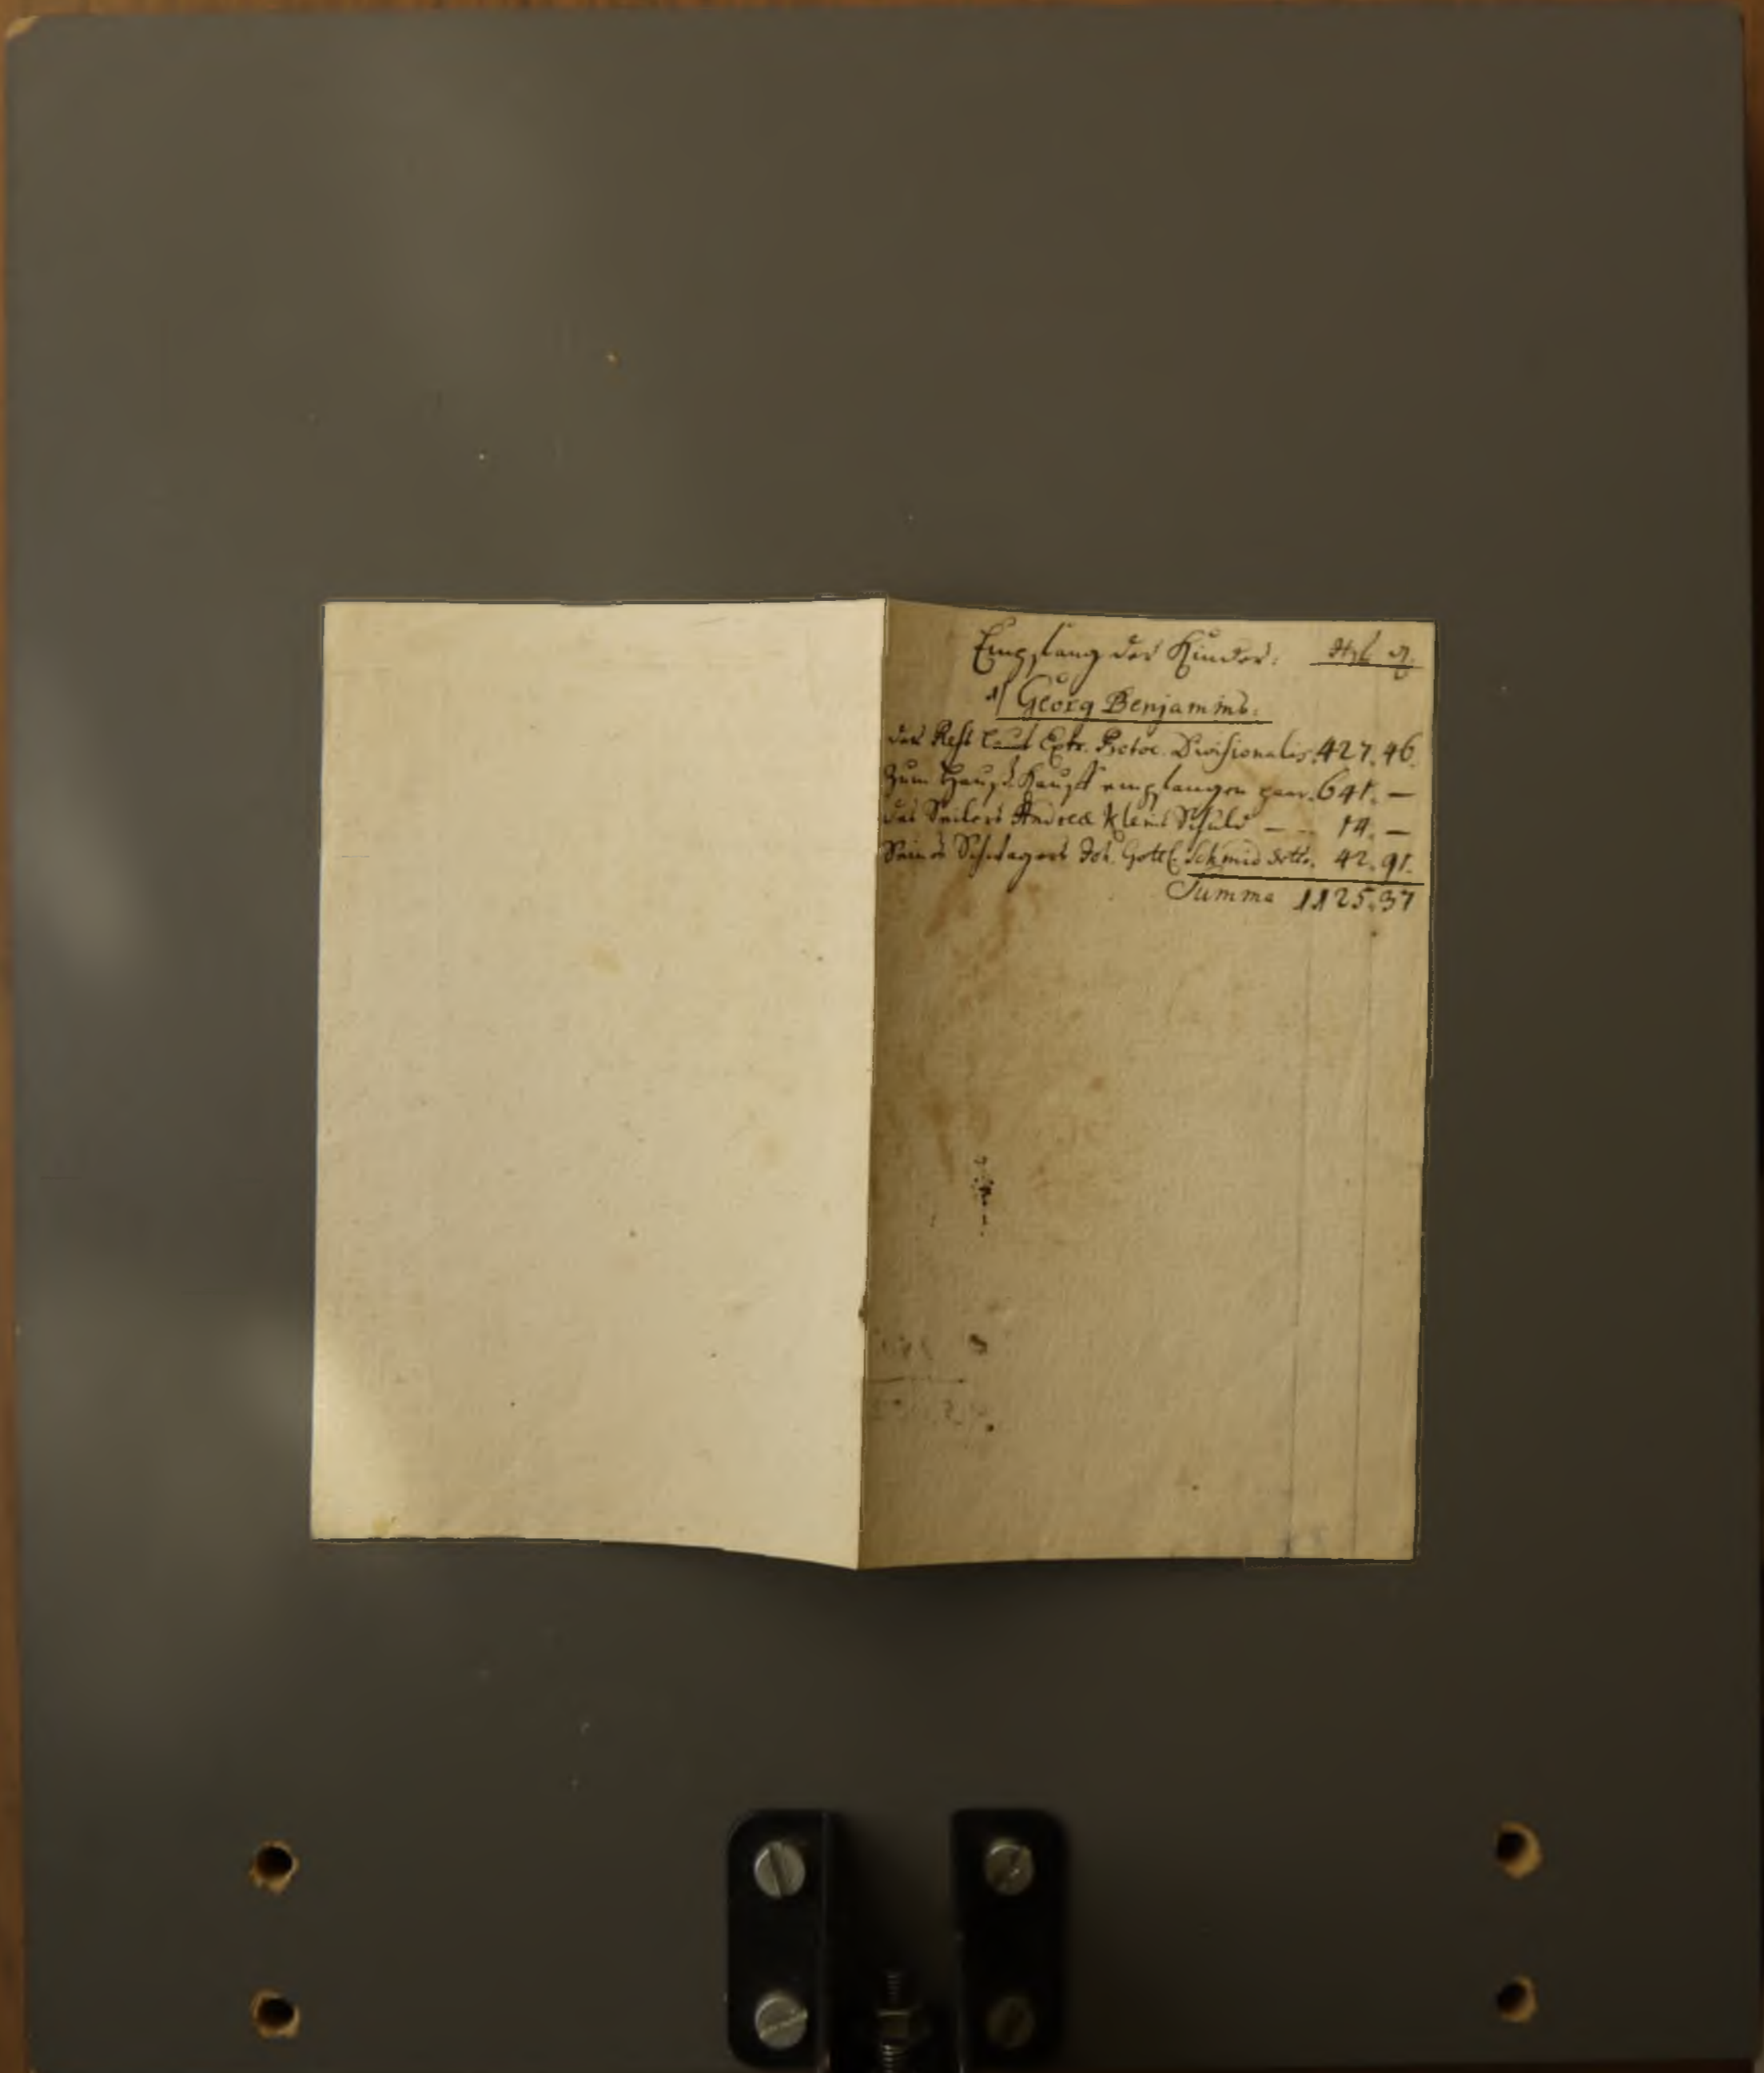 Empfang der Kinder: Hfl d.
1/ Georg Benjamins.
der Rest laut Extr. Protoc. Divisionalis. 427. 46.
Zum Haus-Kauff empfangen paar. 641. —
des Seilers Andreæ Kleins Schuld — 14. —
Seines Schwagers Joh. Gottl. Schmid detto. 42. 91.
Summa 1125. 37